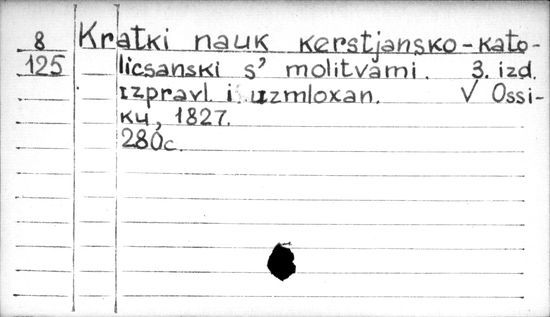 8 Kratki nauk kerstjansko-kato-
125 licsanski s' molitvami. 3. izd.
izpravl. i uzmloxan. V Ossi-
ku, 1827.
280c.